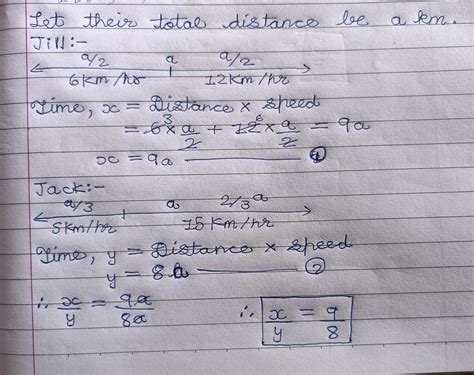 Let their total distance be a km.
Jill:-
a/2 a a/2
6Km/hr 12Km/hr
Time, x = Distance × speed
= 6³ × a/2 + 12⁶ × a/2 = 9a
x = 9a ——— ①
Jack:-
a/3 a 2/3 a
5Km/hr 15Km/hr
Time, y = Distance × speed
y = 8a ——— ②
∴ x/y = 9a/8a ∴ x/y = 9/8